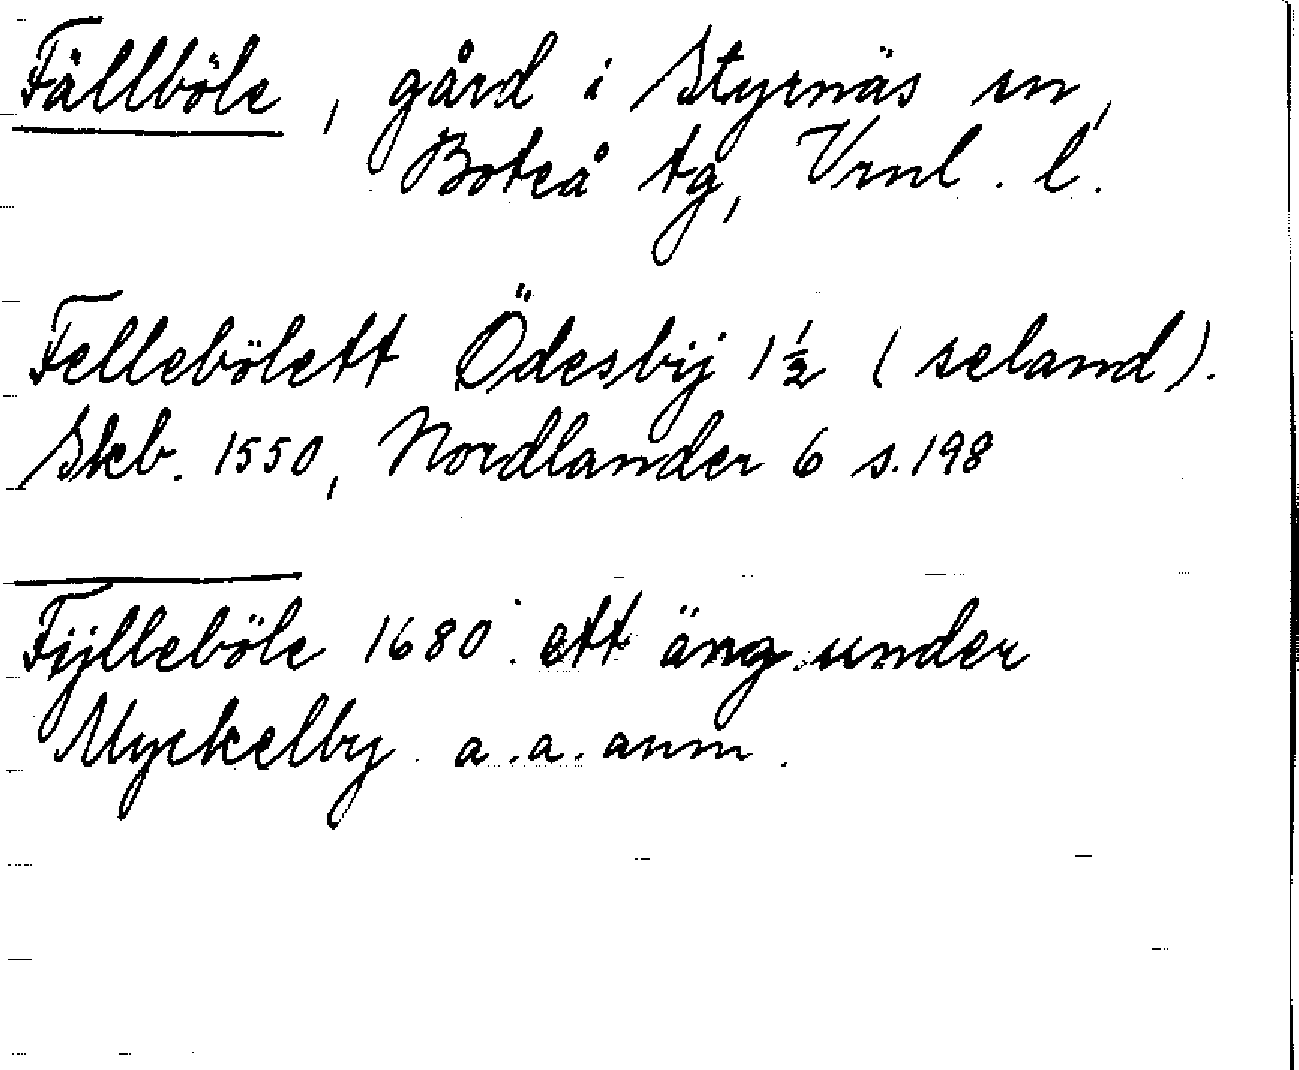 Fällböle, gård i Styrnäs sn,
Boteå tg, Vrnl. l.
Fellebölett Ödesbij 1½ (seland).
Skb. 1550, Nordlander 6 s. 198
Fijlleböle 1680. ett äng under
Myckelby a.a. anm.